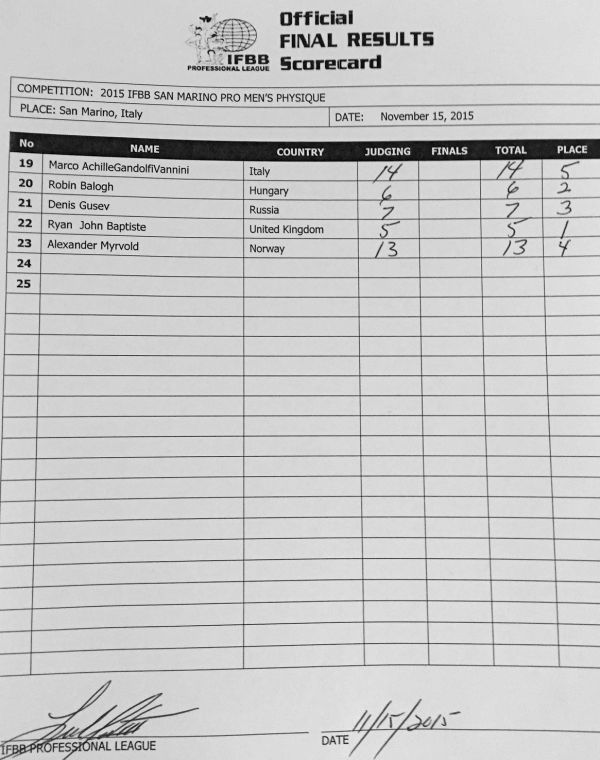 Official
FINAL RESULTS
Scorecard
IFBB
PROFESSIONAL LEAGUE
COMPETITION: 2015 IFBB SAN MARINO PRO MEN'S PHYSIQUE
PLACE: San Marino, Italy DATE: November 15, 2015
No NAME COUNTRY JUDGING FINALS TOTAL PLACE
19 Marco AchilleGandolfiVannini Italy 14 14 5
20 Robin Balogh Hungary 6 6 2
21 Denis Gusev Russia 7 7 3
22 Ryan John Baptiste United Kingdom 5 5 1
23 Alexander Myrvold Norway 13 13 4
24
25
IFBB PROFESSIONAL LEAGUE DATE 11/15/2015